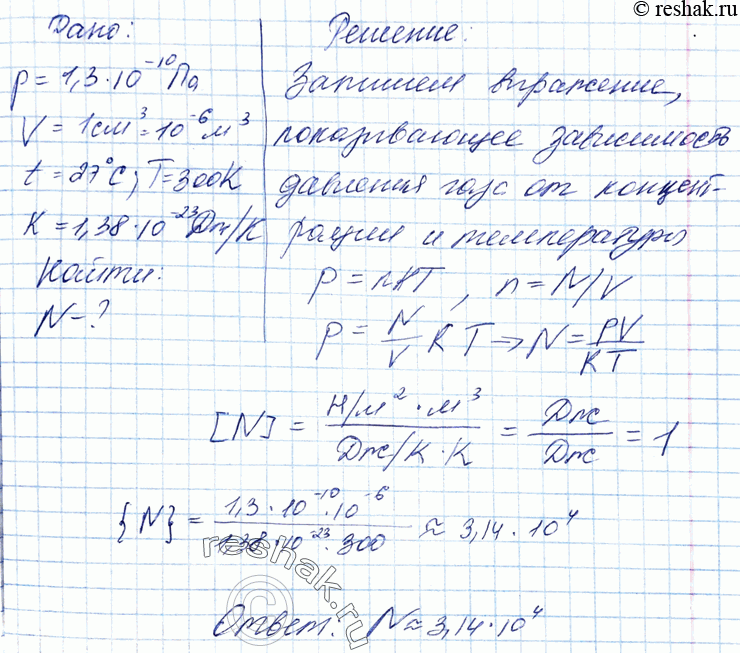 © reshak.ru
Дано:
p = 1,3·10⁻¹⁰ Па
V = 1см³ = 10⁻⁶ м³
t = 27°C; T = 300K
K = 1,38·10⁻²³ Дж/К
Найти:
N - ?
Решение:
Запишем выражение,
показывающее зависимость
давления газа от концент-
рации и температуры
P = nKT, n = N/V
P = N/V K T ⇒ N = PV/KT
[N] = Н/м² · м³ / Дж/К · К = Дж/Дж = 1
{N} = 1,3·10⁻¹⁰·10⁻⁶ / 1,38·10⁻²³·300 ≈ 3,14·10⁴
reshak.ru
©
Ответ: N ≈ 3,14·10⁴